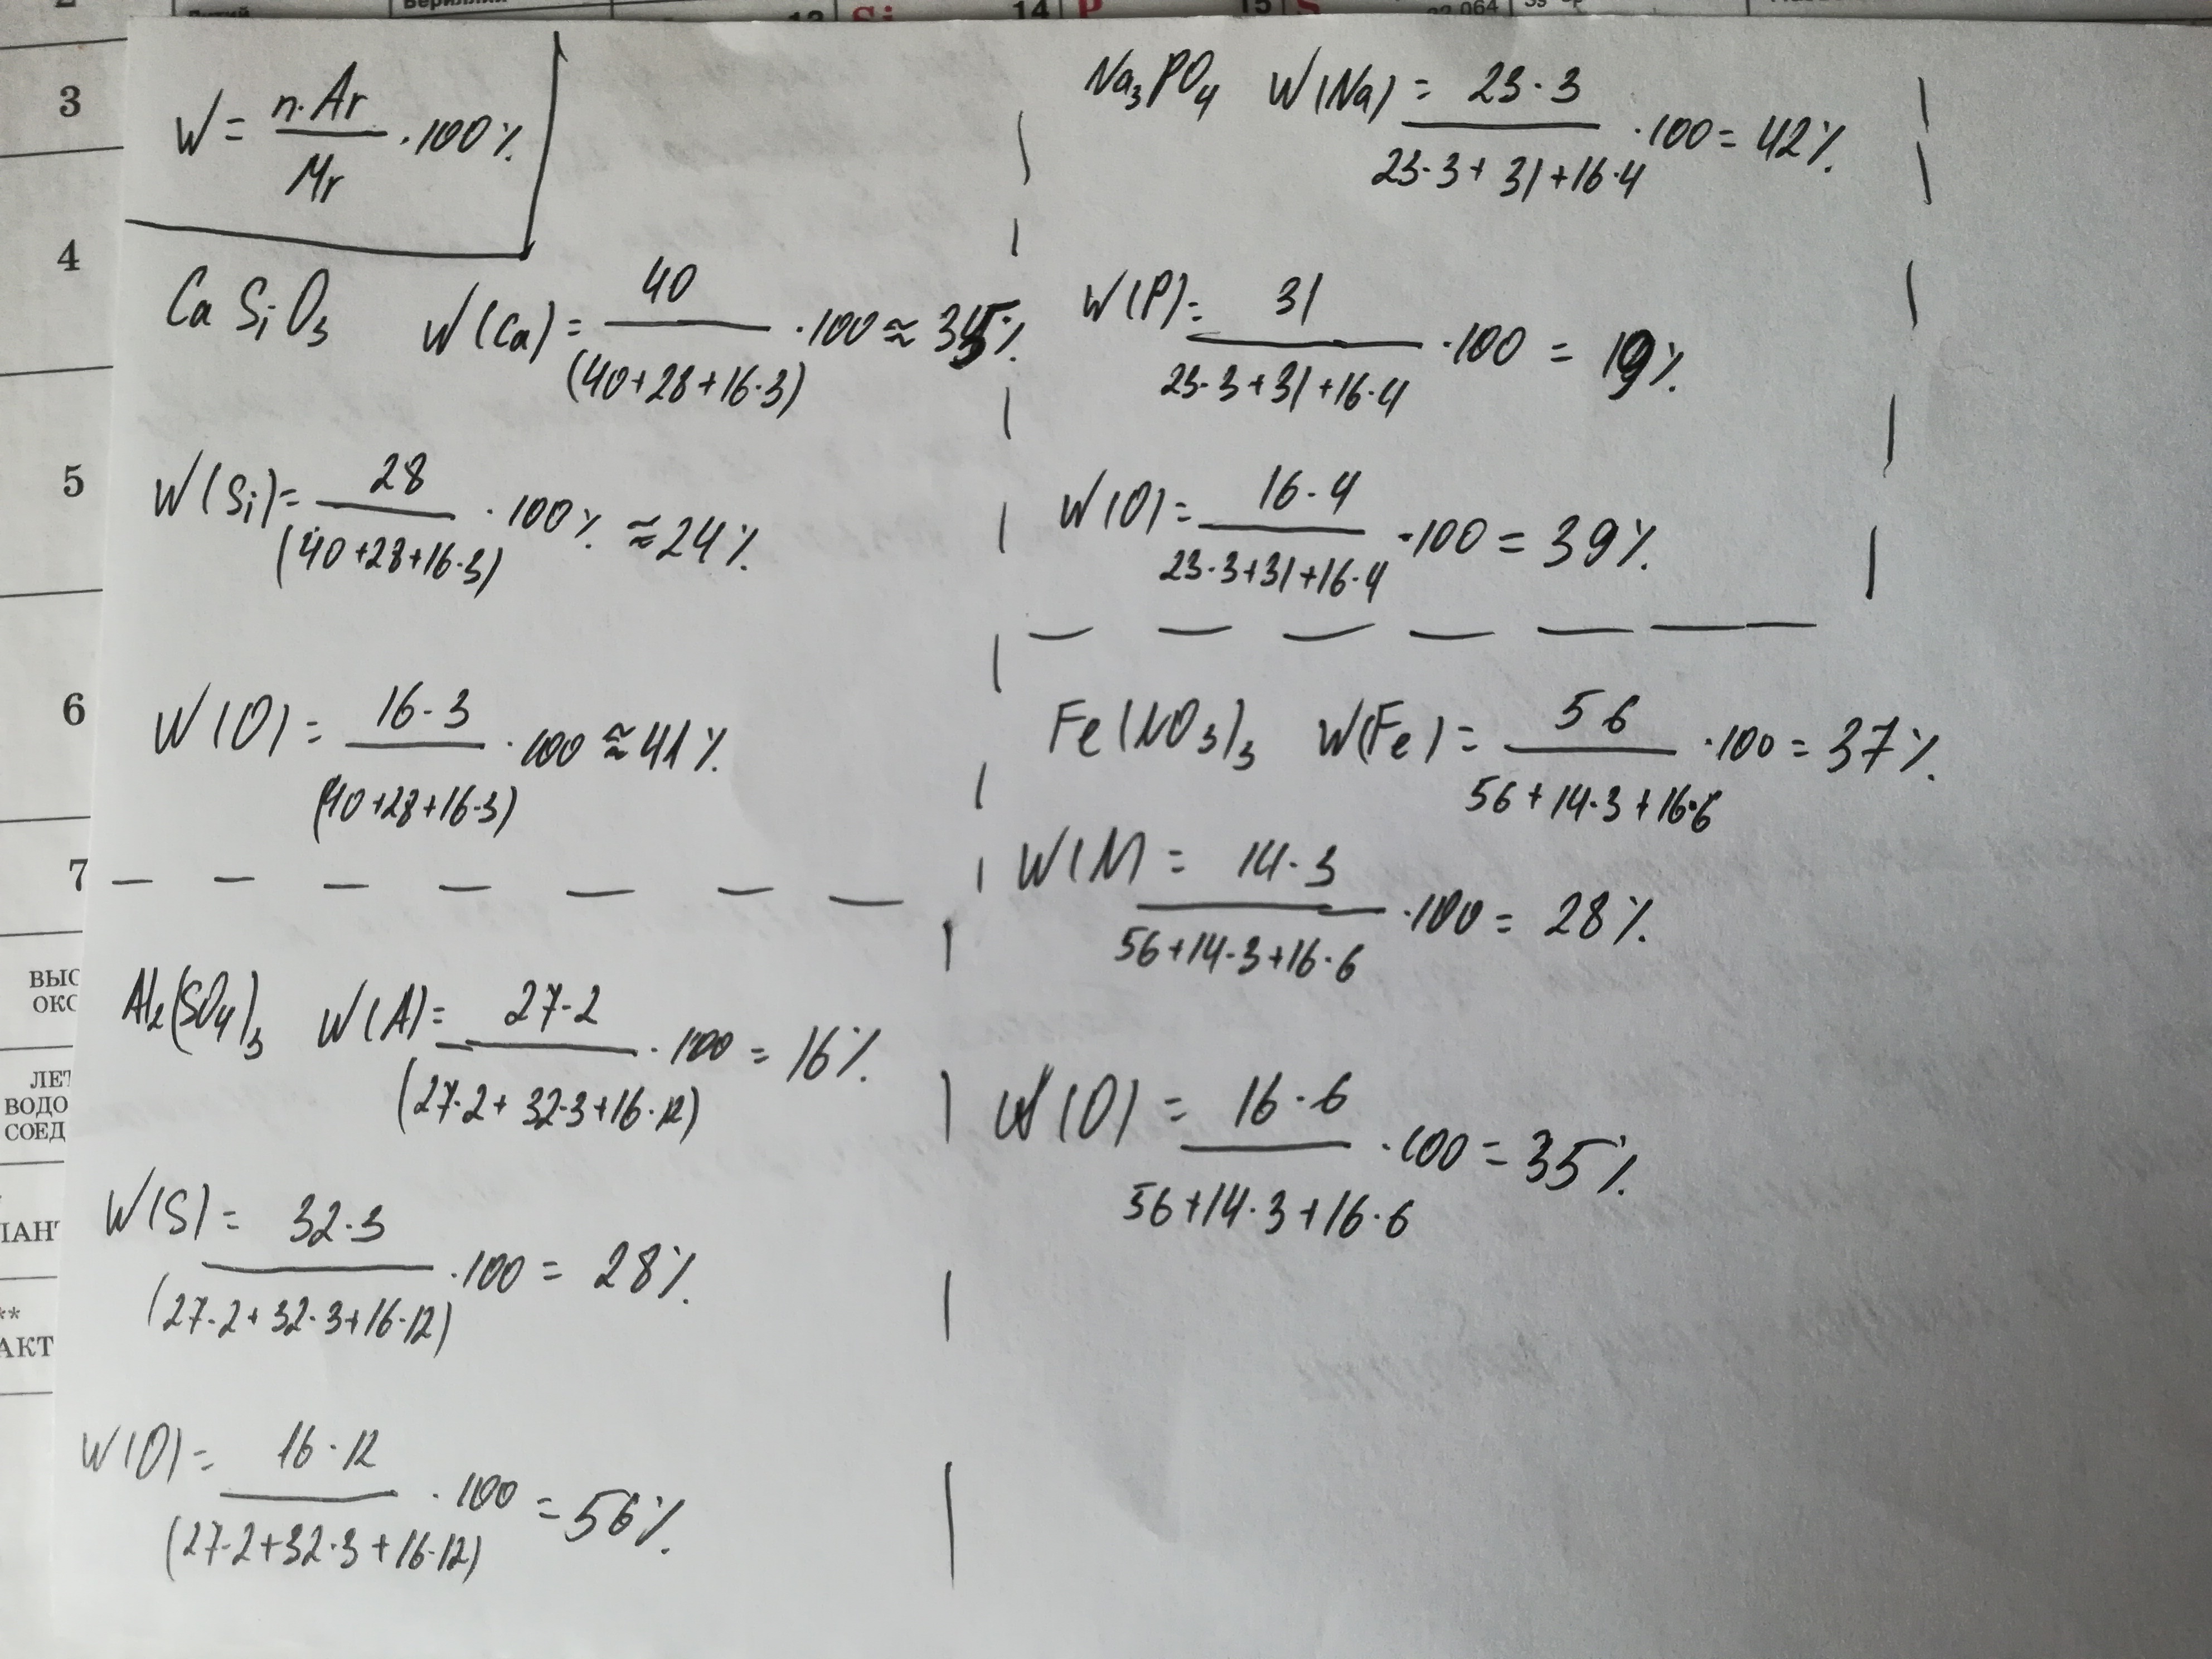 Бериллий
13 Si 14 P 15 S
3
4
5
6
7
ВЫС
ОКС
ЛЕТ
ВОДО
СОЕД
ЛАНТ
**
АКТ
W = n·Ar / Mr · 100%
CaSiO₃ W(Ca) = 40 / (40+28+16·3) · 100 ≈ 35%
W(Si) = 28 / (40+28+16·3) · 100% ≈ 24%
W(O) = 16·3 / (40+28+16·3) · 100 ≈ 41%
Al₂(SO₄)₃ W(A) = 27·2 / (27·2+32·3+16·12) · 100 = 16%
W(S) = 32·3 / (27·2+32·3+16·12) · 100 = 28%
W(O) = 16·12 / (27·2+32·3+16·12) · 100 = 56%
Na₃PO₄ W(Na) = 23·3 / 23·3+31+16·4 · 100 = 42%
W(P) = 31 / 23·3+31+16·4 · 100 = 19%
W(O) = 16·4 / 23·3+31+16·4 · 100 = 39%
Fe(NO₃)₃ W(Fe) = 56 / 56+14·3+16·6 · 100 = 37%
W(N) = 14·3 / 56+14·3+16·6 · 100 = 28%
W(O) = 16·6 / 56+14·3+16·6 · 100 = 35%